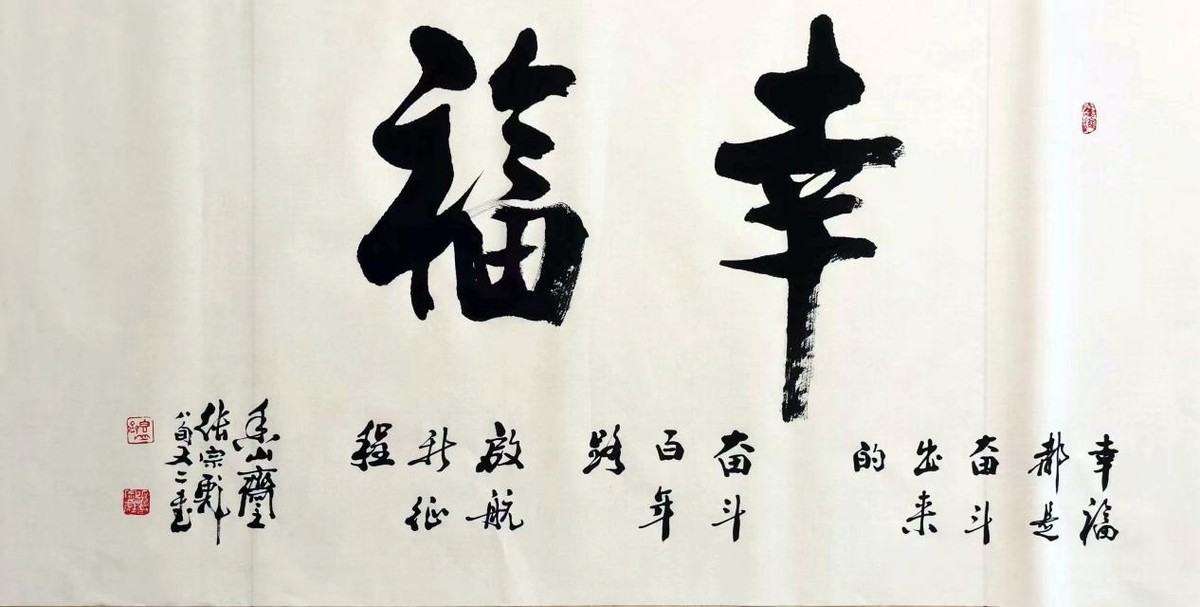 幸福
幸福
都是
奋斗
出来
的
奋斗
百年
路
啟航
新征
程
山齋
张宗
八旬又二书